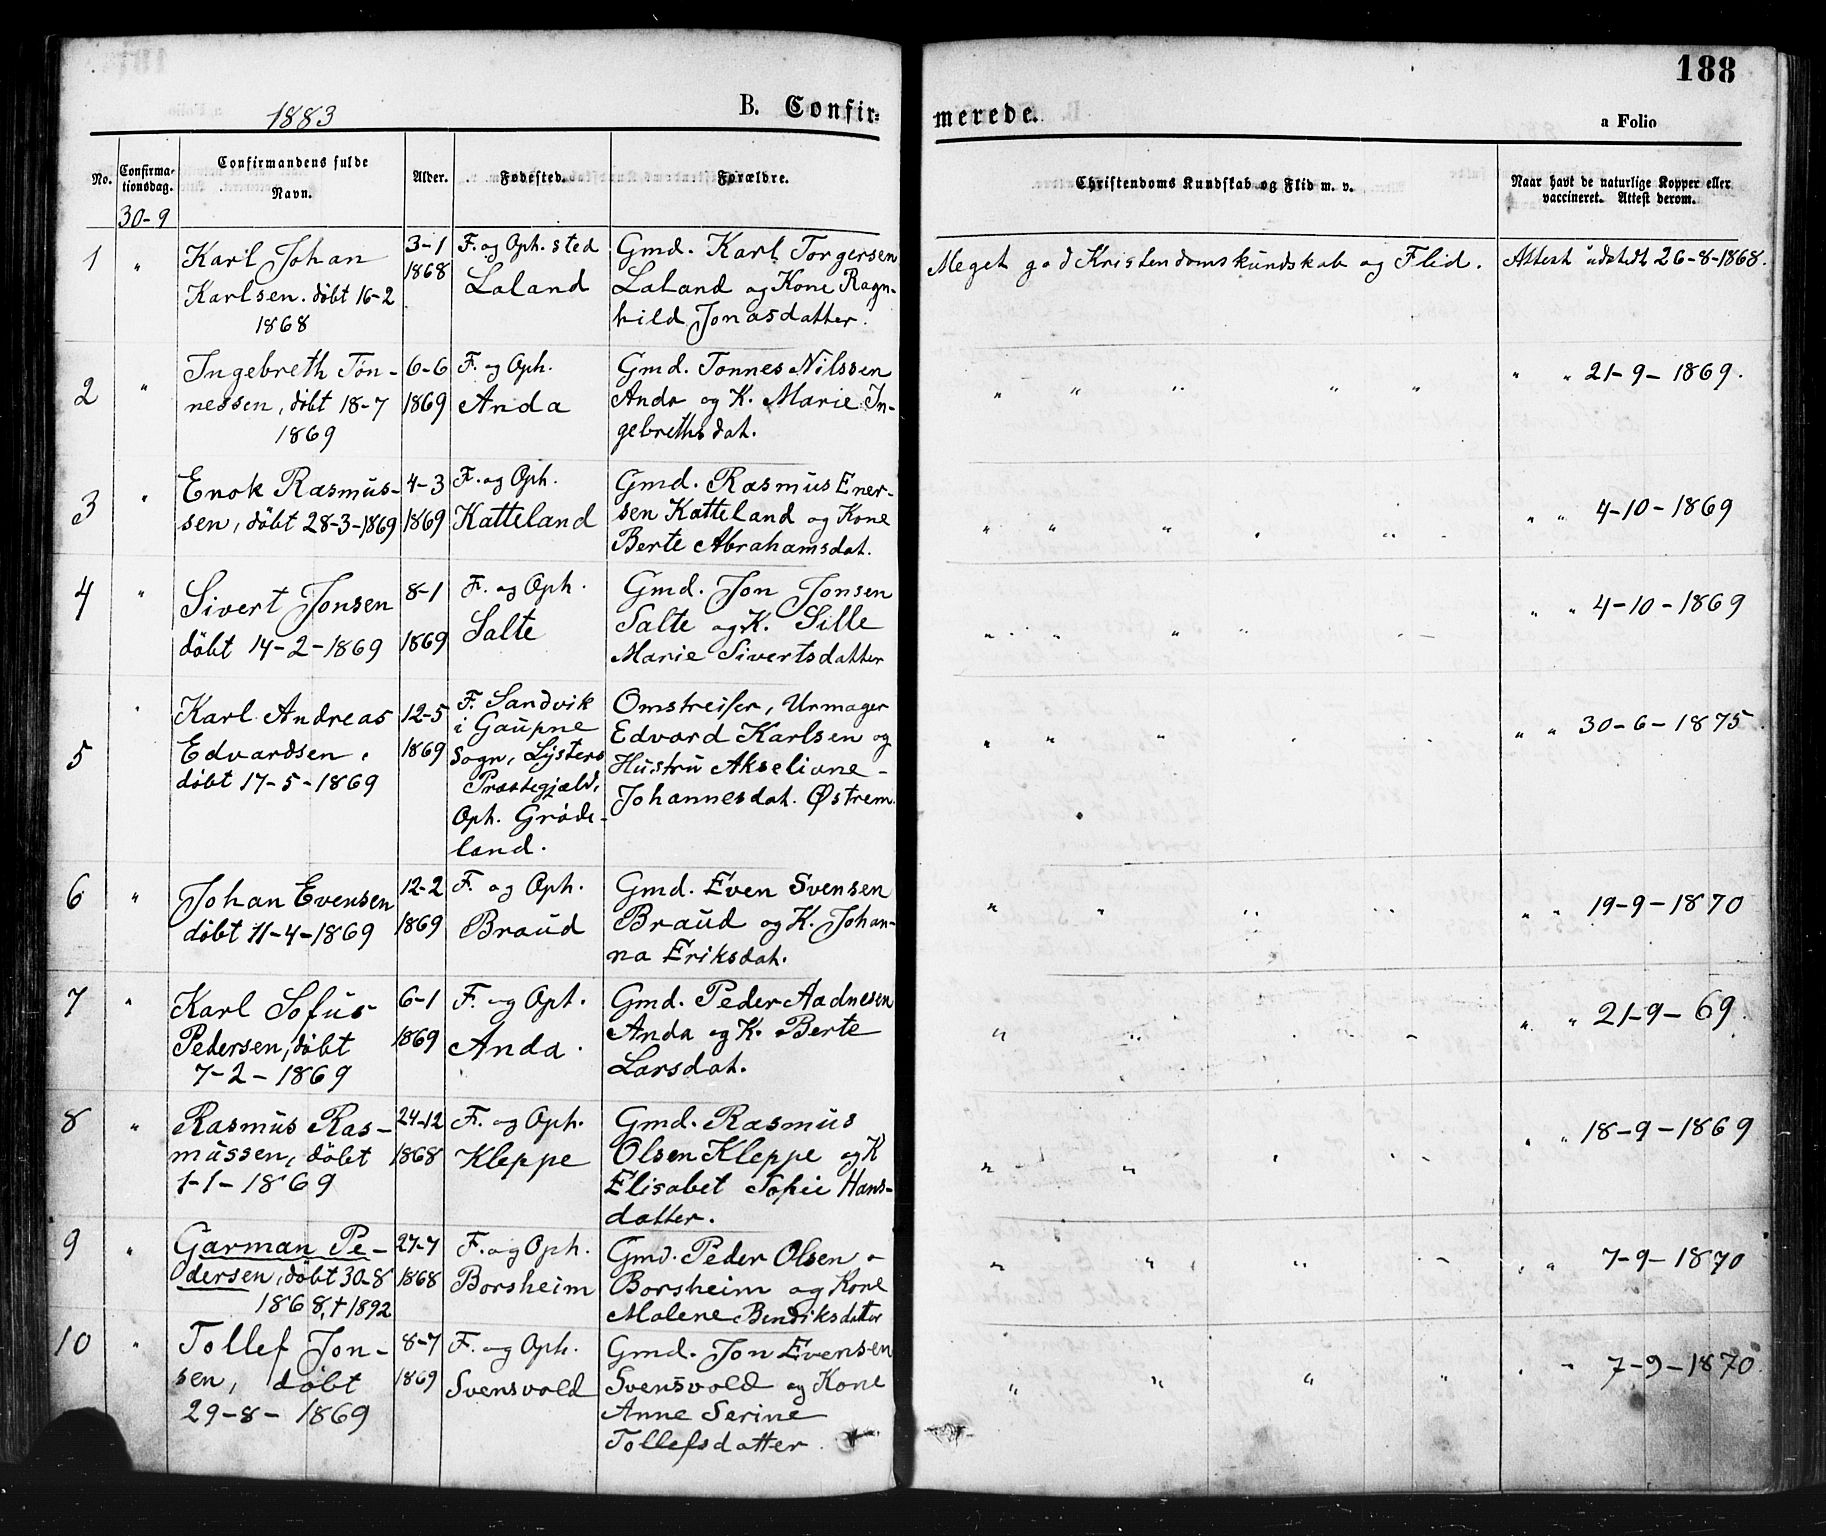 188
1883
B. Confir- merede.
a Folio
No.
Confirma-
tionsdag.
Confirmandens fulde
Navn.
Alder.
Fødested.
Forældre.
Christendoms Kundskab og Flid m. v.
Naar havt de naturlige Kopper eller
vaccineret. Attest derom.
30-9
1
"
Karl Johan
Karlsen. döbt 16-2
1868
3-1
1868
F. og Oph. sted
Laland
Gmd. Karl Torgersen
Laland og Kone Ragn-
hild Jonasdatter.
Meget god Kristendomskundskab og Flid.
Attest udstedt 26-8-1868.
2
"
Ingebreth Tön-
nessen, döbt 18-7
1869
6-6
1869
F. og Oph.
Anda
Gmd. Tonnes Nilssen
Anda og K. Marie In-
gebrethsdat.
" " " " "
" " 21-9-1869.
3
"
Enok Rasmus-
sen, döbt 28-3-1869
4-3
1869
F. og Oph.
Katteland
Gmd. Rasmus Ener-
sen Katteland og Kone
Berte Abrahamsdat.
" " " " "
" " 4-10-1869
4
"
Sivert Jonsen
döbt 14-2-1869
8-1
1869
F. og Oph.
Salte
Gmd. Jon Jonsen
Salte og K. Sille
Marie Sivertsdatter
" " " "
" " 4-10-1869
5
"
Karl Andreas
Edvardsen,
döbt 17-5-1869
12-5
1869
F. Sandvik
i Gaupne
Sogn, Lysters
Præstegjæld,
Oph. Gröde-
land.
Omstreifer, Urmager
Edvard Karlsen og
Hustru Akseliane
Johannesdat. Østrem.
" " " "
" " 30-6-1875
6
"
Johan Evensen
döbt 11-4-1869
12-2
1869
F. og Oph.
Braud
Gmd. Even Svensen
Braud og K. Johan-
na Eriksdat.
" " " "
" " 19-9-1870
7
"
Karl Sofus
Pedersen, döbt
7-2-1869
6-1
1869
F. og Oph.
Anda.
Gmd. Peder Aadnesen
Anda og K. Berte
Larsdat.
" " " "
" " 21-9-69.
8
"
Rasmus Ras-
mussen, döbt
1-1-1869
24-12
1868
F. og Oph.
Kleppe
Gmd. Rasmus
Olsen Kleppe og K
Elisabet Sofie Hans-
datter.
" " " "
" " 18-9-1869
9
"
Garman Pe-
dersen, döbt 30-8
1868, † 1892
27-7
1868
F. og Oph.
Borsheim
Gmd. Peder Olsen
Borsheim og Kone
Malene Bendiksdatter
" " " "
" " 7-9-1870
10
"
Tollef Jon-
sen, döbt
29-8-1869
8-7
1869
F. og Oph.
Svensvold
Gmd. Jon Evensen
Svensvold og Kone
Anne Serine
Tollefsdatter
" " " "
" " 7-9-1870.